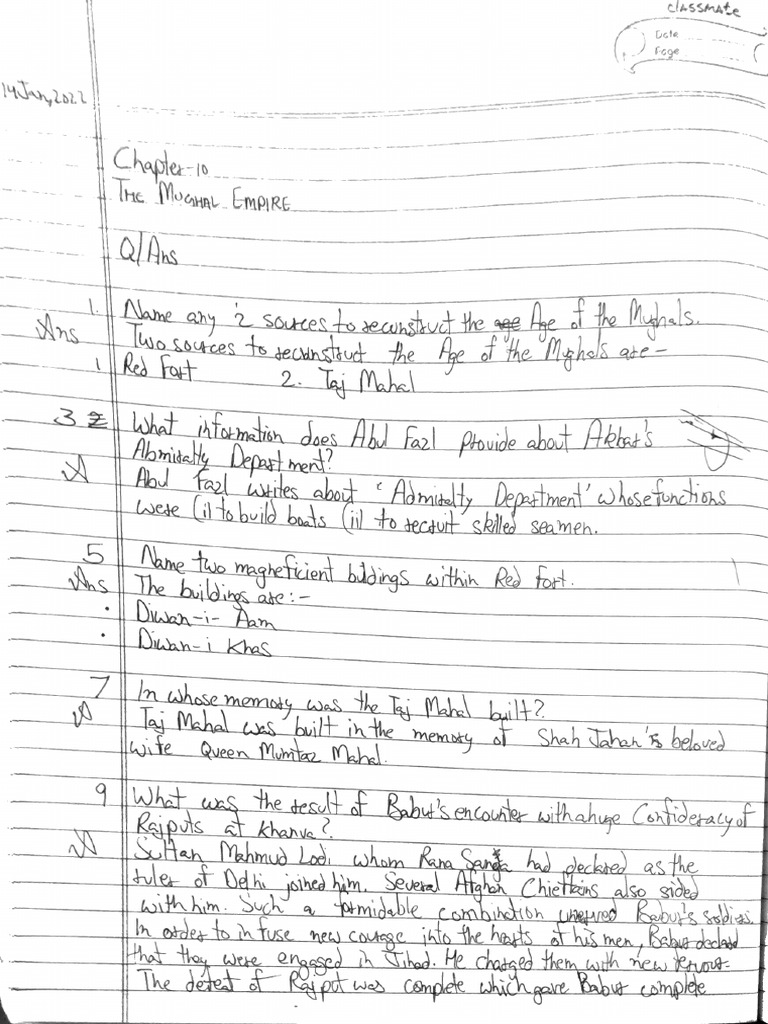 classmate
Date
Page
14 Jan, 2022
Chapter-10
THE MUGHAL EMPIRE
Q/Ans
1. Name any 2 sources to reconstruct the age Age of the Mughals.
Ans Two sources to reconstruct the Age of the Mughals are-
1 Red Fort 2. Taj Mahal
3 2 What information does Abul Fazl provide about Akbar's
Abmiralty Department?
A Abul Fazl writes about 'Admiralty Department' whose functions
were (i) to build boats (ii) to recruit skilled seamen.
5 Name two magneficient buldings within Red Fort.
Ans The buildings are:-
• Diwan-i- Aam
• Diwan-i Khas
7 In whose memory was the Taj Mahal built?
A Taj Mahal was built in the memory of Shah Jahan's beloved
wife Queen Mumtaz Mahal.
9 What was the result of Babur's encounter with a huge Confideracy of
Rajputs at Khanva?
A Sultan Mahmud Lodi whom Rana Sanga had declared as the
ruler of Delhi joined him. Several Afghan Chieftains also sided
with him. Such a formidable combination unnerved Babur's soldiers.
In order to infuse new courage into the hearts of his men, Babur declared
that they were engaged in Jihad. He charged them with new
The defeat of Rajput was complete which gave Babur complete